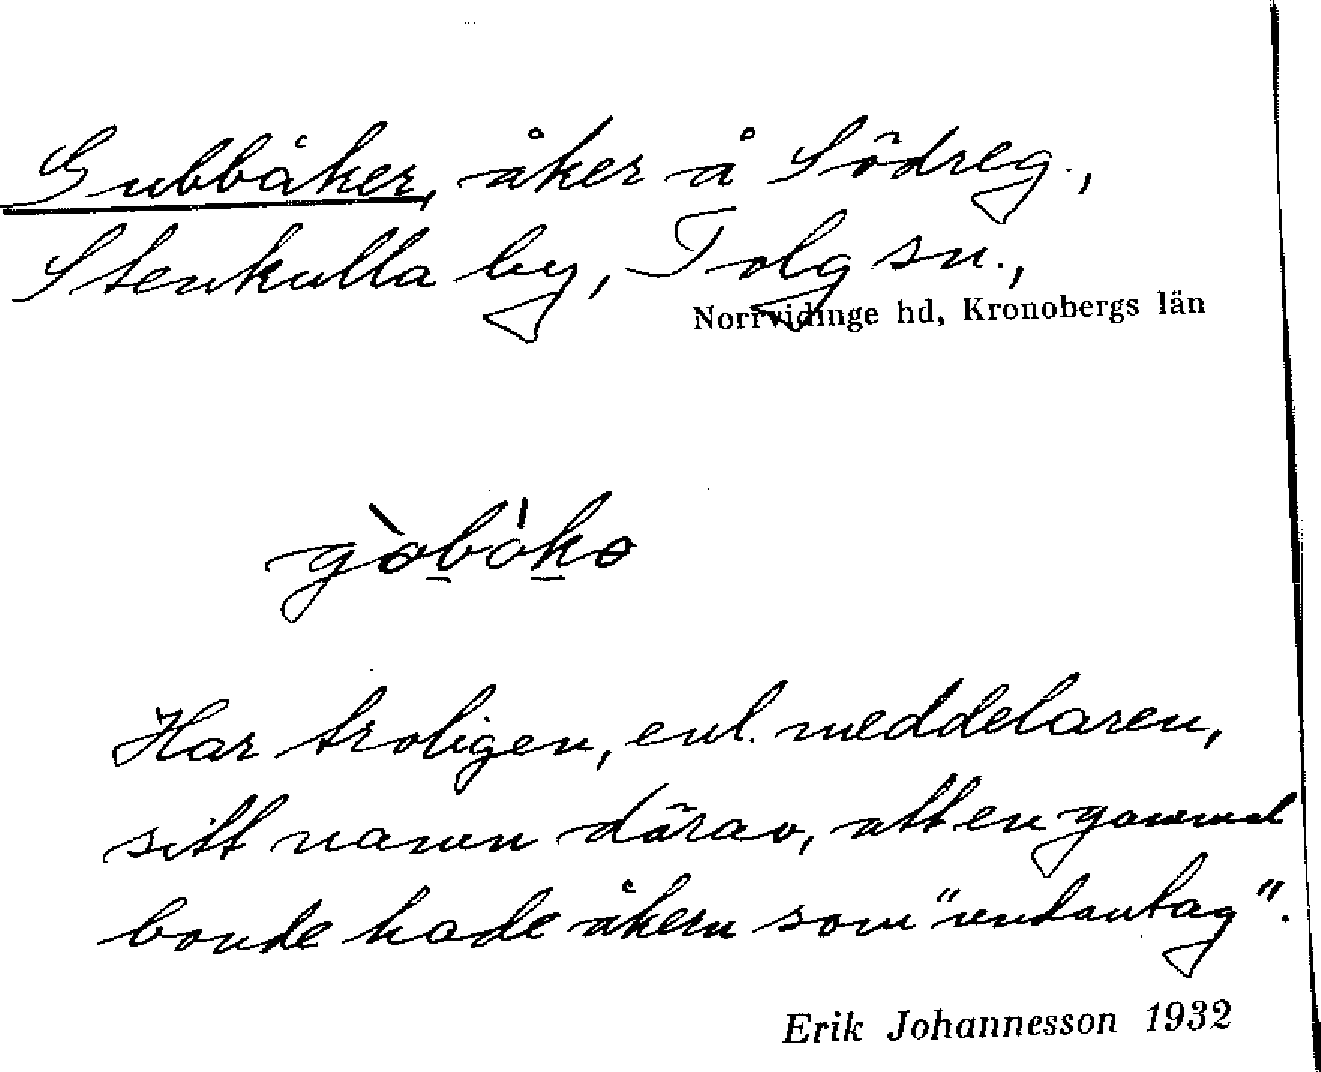 Gubbåker, åker å Södreg.,
Stenkulla by, Tolg sn.,
Norrvidinge hd, Kronobergs län
Har troligen, enl. meddelaren,
sitt namn därav, att en gammal
bonde hade åkern som "undantag".
Erik Johannesson 1932